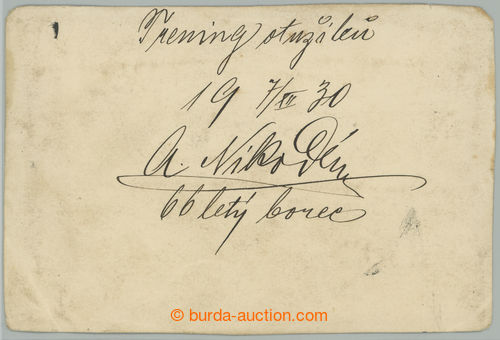 Trening otužilců
19 7/XII 30
A. Nikodém
66 letý borec
© burda-auction.com